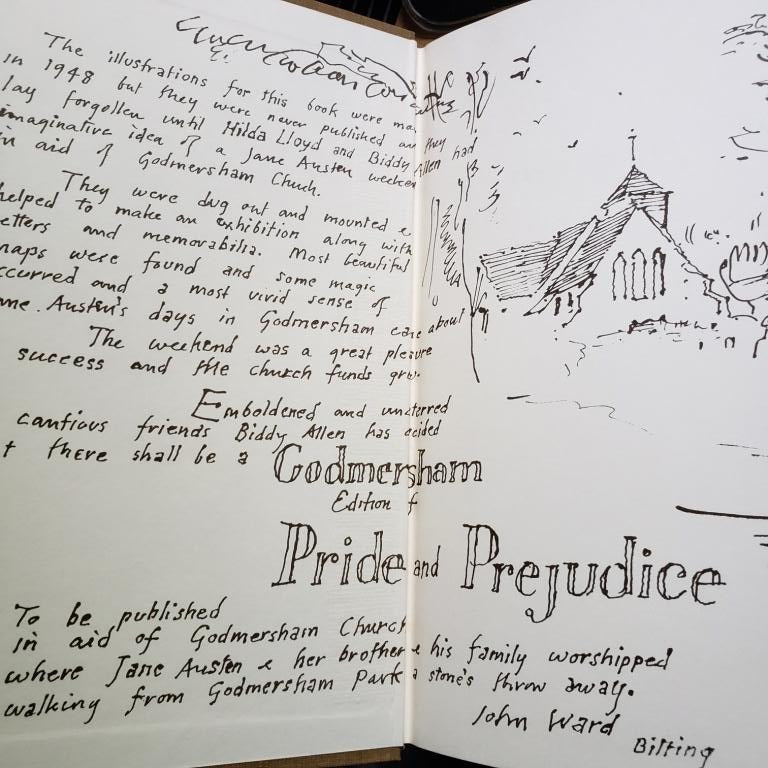 The illustrations for this book were
in 1948 but they were never published and they
lay forgotten until Hilda Lloyd and Biddy Allen had
imaginative idea of a Jane Austen
in aid of Godmersham Church.
They were dug out and mounted &
helped to make an exhibition along with
and memorabilia. Most beautiful
maps were found and some magic
and a most vivid sense of
Austen's days in Godmersham came about
The weekend was a great pleasure
success and the church funds
Emboldened and undeterred
cautious friends Biddy Allen has decided
there shall be a Godmersham
Edition of
Pride and Prejudice
To be published
in aid of Godmersham Church
where Jane Austen & her brother & his family worshipped
walking from Godmersham Park a stone's throw away.
John Ward
Bilting